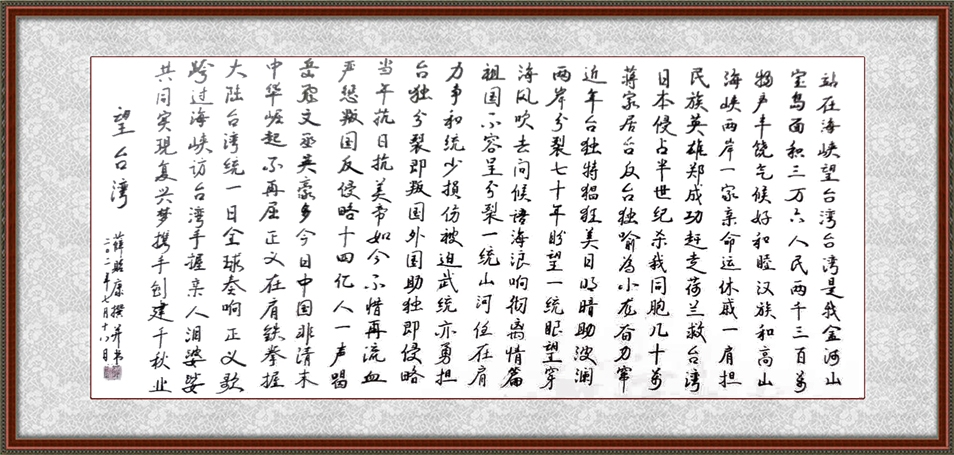 站在海峡望台湾台湾是我金河山
宝岛面积三万六人民两千三百万
物产丰饶气候好和睦汉族和高山
海峡两岸一家亲命运休戚一肩担
民族英雄郑成功赶走荷兰救台湾
日本侵占半世纪杀我同胞几十万
蒋家居台反台独喻为小龙奋力窜
近年台独特猖狂美日明暗助波澜
两岸分裂七十年盼望一统眼望穿
海风吹去问候语海浪响彻离情篇
祖国不容呈分裂一统山河任在肩
力争和统少损伤被迫武统亦勇担
台独分裂即叛国外国助独即侵略
当年抗日抗美帝如今不惜再流血
严惩叛国反侵略十四亿人一声喝
岳飞文丞英豪多今日中国非清末
中华崛起不再屈正义在肩铁拳握
大陆台湾统一日全球奏响正义歌
跨过海峡访台湾手握亲人泪婆娑
共同实现复兴梦携手创建千秋业
望台湾
薛照康撰并书
二〇二一年七月十八日